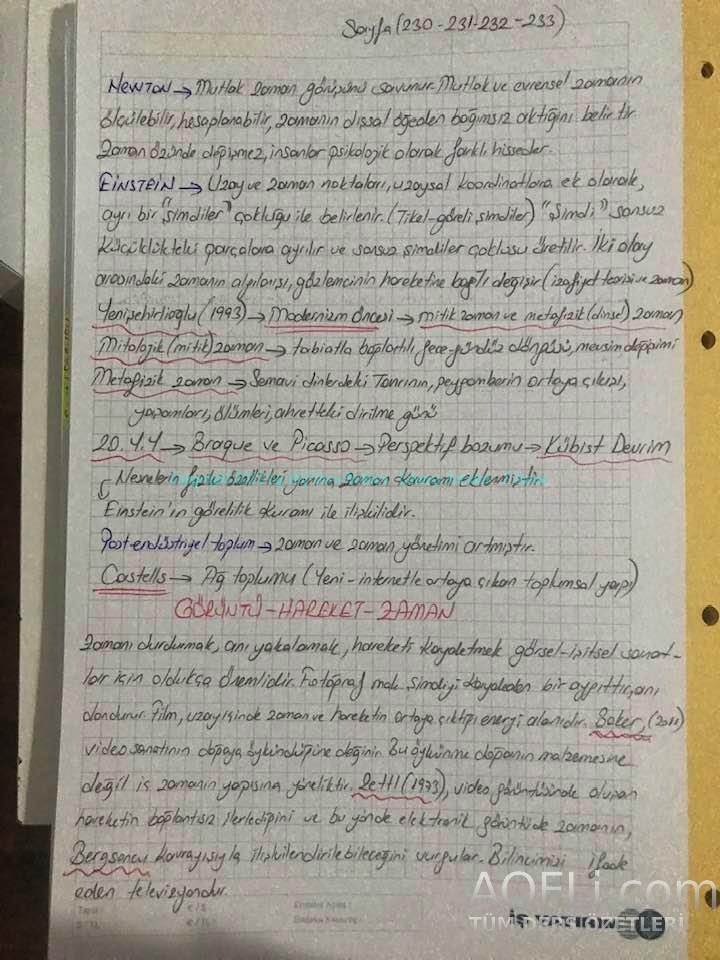 Sayfa (230-231-232-233)
NEWTON → Mutlak zaman görüşünü savunur. Mutlak ve evrensel zamanın
ölçülebilir, hesaplanabilir, zamanın dışsal öğeden bağımsız aktığını belirtir.
Zaman özünde değişmez, insanlar psikolojik olarak farklı hisseder.
EİNSTEİN → Uzay ve zaman noktaları, uzaysal koordinatlara ek olarak,
ayrı bir "şimdiler" çokluğu ile belirlenir. (Tikel-göreli şimdiler) "Şimdi" sonsuz
küçüklükteki parçalara ayrılır ve sonsuz şimdiler çokluğu üretilir. İki olay
arasındaki zamanın algılanışı, gözlemcinin hareketine bağlı değişir (izafiyet teorisi ve zaman)
Yenişehirlioğlu (1993) → Modernizm öncesi → mitik zaman ve metafizik (dinsel) zaman
Mitolojik (mitik) zaman → tabiatla bağlantılı, gece-gündüz döngüsü, mevsim değişimi
Metafizik zaman → Semavi dinlerdeki Tanrının, peygamberin ortaya çıkışı,
yaşamları, ölümleri, ahretteki dirilme günü
20. y.y → Braque ve Picasso → Perspektif bozumu → Kübist Devrim
Nesnelerin fiziki özellikleri yanına zaman kavramı eklenmiştir.
Einstein'ın görelilik kuramı ile ilişkilidir.
Post-endüstriyel toplum → zaman ve zaman yönetimi artmıştır.
Castells → Ağ toplumu (Yeni-internetle ortaya çıkan toplumsal yapı)
GÖRÜNTÜ-HAREKET-ZAMAN
Zamanı durdurmak, anı yakalamak, hareketi kaydetmek görsel-işitsel sanat-
lar için oldukça önemlidir. Fotoğraf mak. şimdiyi kaydeden bir aygıttır, anı
dondurur. Film, uzay içinde zaman ve hareketin ortaya çıktığı enerji alanıdır. Baker, (2011)
video sanatının doğaya öykündüğüne değinir. Bu öykünme doğanın malzemesine
değil iç zamanın yapısına yöneliktir. Zettl (1973), video görüntüsünde oluşan
hareketin bağlantısız ilerlediğini ve bu yönde elektronik görüntüde zamanın,
Bergsoncu kavrayışıyla ilişkilendirilebileceğini vurgular. Bilincimizi ifade
eden televizyondur.
AOFLi.com
TÜM DERS ÖZETLERİ